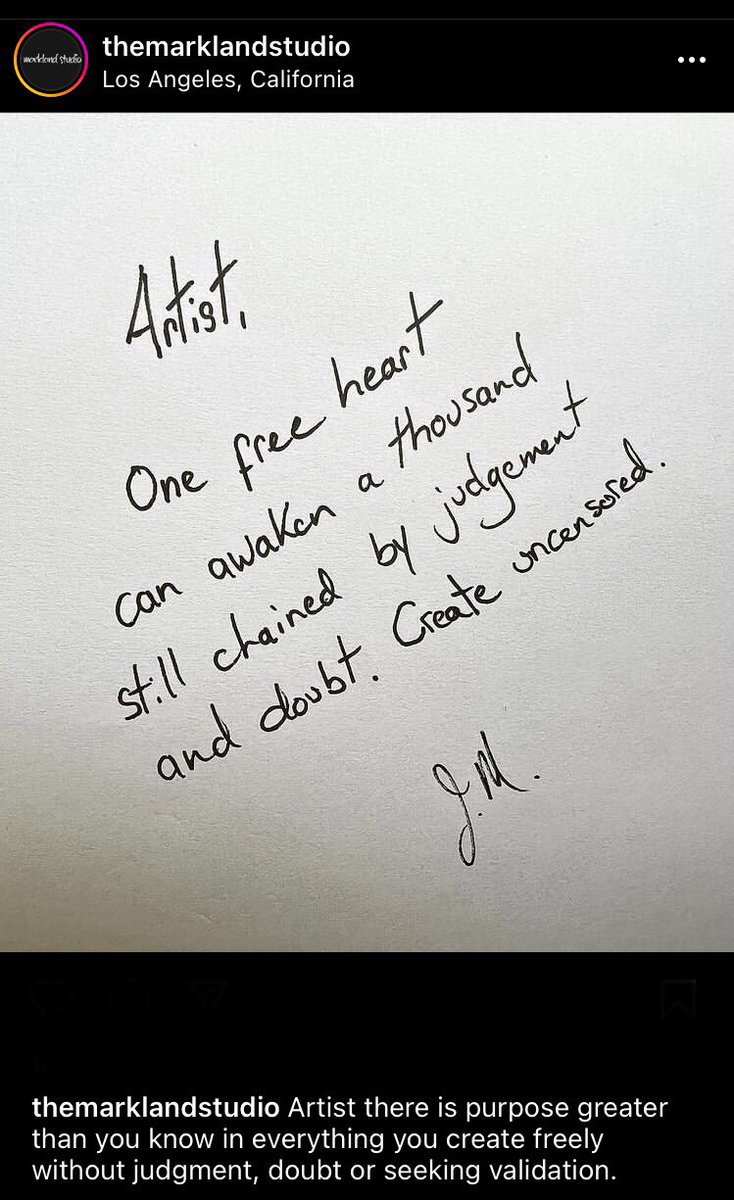 markland studio
themarklandstudio
Los Angeles, California
Artist,
One free heart
can awaken a thousand
still chained by judgement
and doubt. Create uncensored.
J.M.
themarklandstudio Artist there is purpose greater
than you know in everything you create freely
without judgment, doubt or seeking validation.